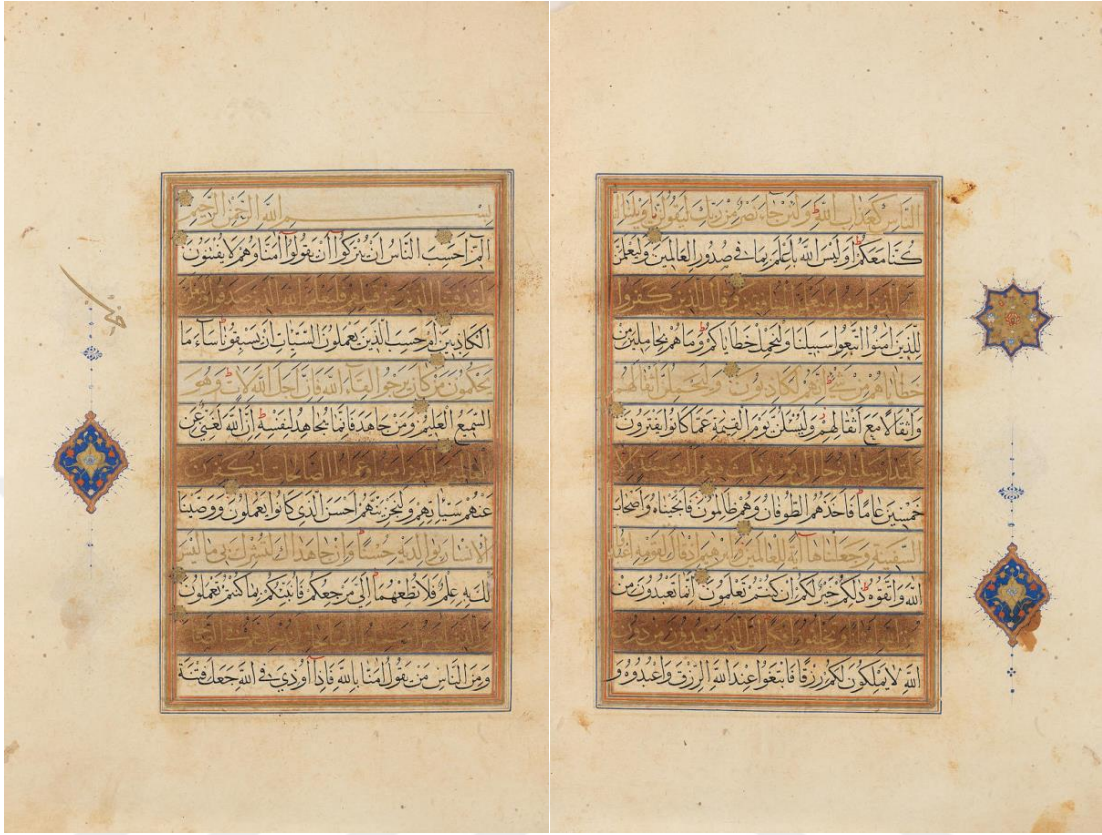 بسم الله الرحمن الرحيم
الم أحسب الناس أن يتركوا أن يقولوا آمنا وهم لا يفتنون
ولقد فتنا الذين من قبلهم فليعلمن الله الذين صدقوا وليعلمن
الكاذبين أم حسب الذين يعملون السيئات أن يسبقونا ساء ما
يحكمون من كان يرجو لقاء الله فإن أجل الله لآت وهو
السميع العليم ومن جاهد فإنما يجاهد لنفسه إن الله لغني عن
العالمين والذين آمنوا وعملوا الصالحات لنكفرن
عنهم سيئاتهم ولنجزينهم أحسن الذي كانوا يعملون ووصينا
الإنسان بوالديه حسنا وإن جاهداك لتشرك بي ما ليس
لك به علم فلا تطعهما إلي مرجعكم فأنبئكم بما كنتم تعملون
والذين آمنوا وعملوا الصالحات لندخلنهم في الصالحين
ومن الناس من يقول آمنا بالله فإذا أوذي في الله جعل فتنة
حزب
الناس كعذاب الله ولئن جاء نصر من ربك ليقولن إنا
كنا معكم أوليس الله بأعلم بما في صدور العالمين وليعلمن
الله الذين آمنوا وليعلمن المنافقين وقال الذين كفروا
للذين آمنوا اتبعوا سبيلنا ولنحمل خطاياكم وما هم بحاملين من
خطاياهم من شيء إنهم لكاذبون وليحملن أثقالهم
وأثقالا مع أثقالهم وليسئلن يوم القيمة عما كانوا يفترون
ولقد أرسلنا نوحا إلى قومه فلبث فيهم ألف سنة إلا
خمسين عاما فأخذهم الطوفان وهم ظالمون فأنجيناه وأصحاب
السفينة وجعلناها آية للعالمين وإبرهيم إذ قال لقومه اعبدوا
الله واتقوه ذلكم خير لكم إن كنتم تعلمون إنما تعبدون من
دون الله أوثانا وتخلقون إفكا إن الذين تعبدون من دون
الله لا يملكون لكم رزقا فابتغوا عند الله الرزق واعبدوه و